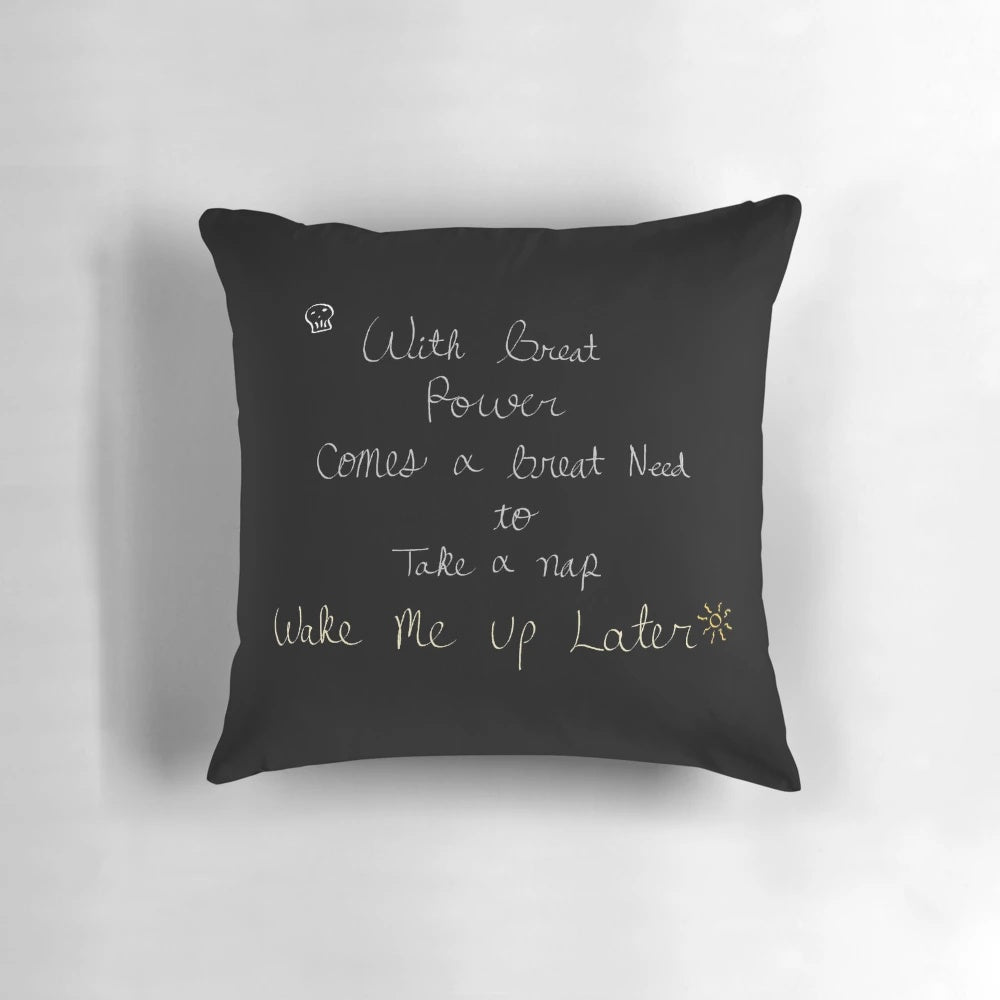 With Great
Power
Comes a Great Need
to
Take a nap
Wake Me up Later